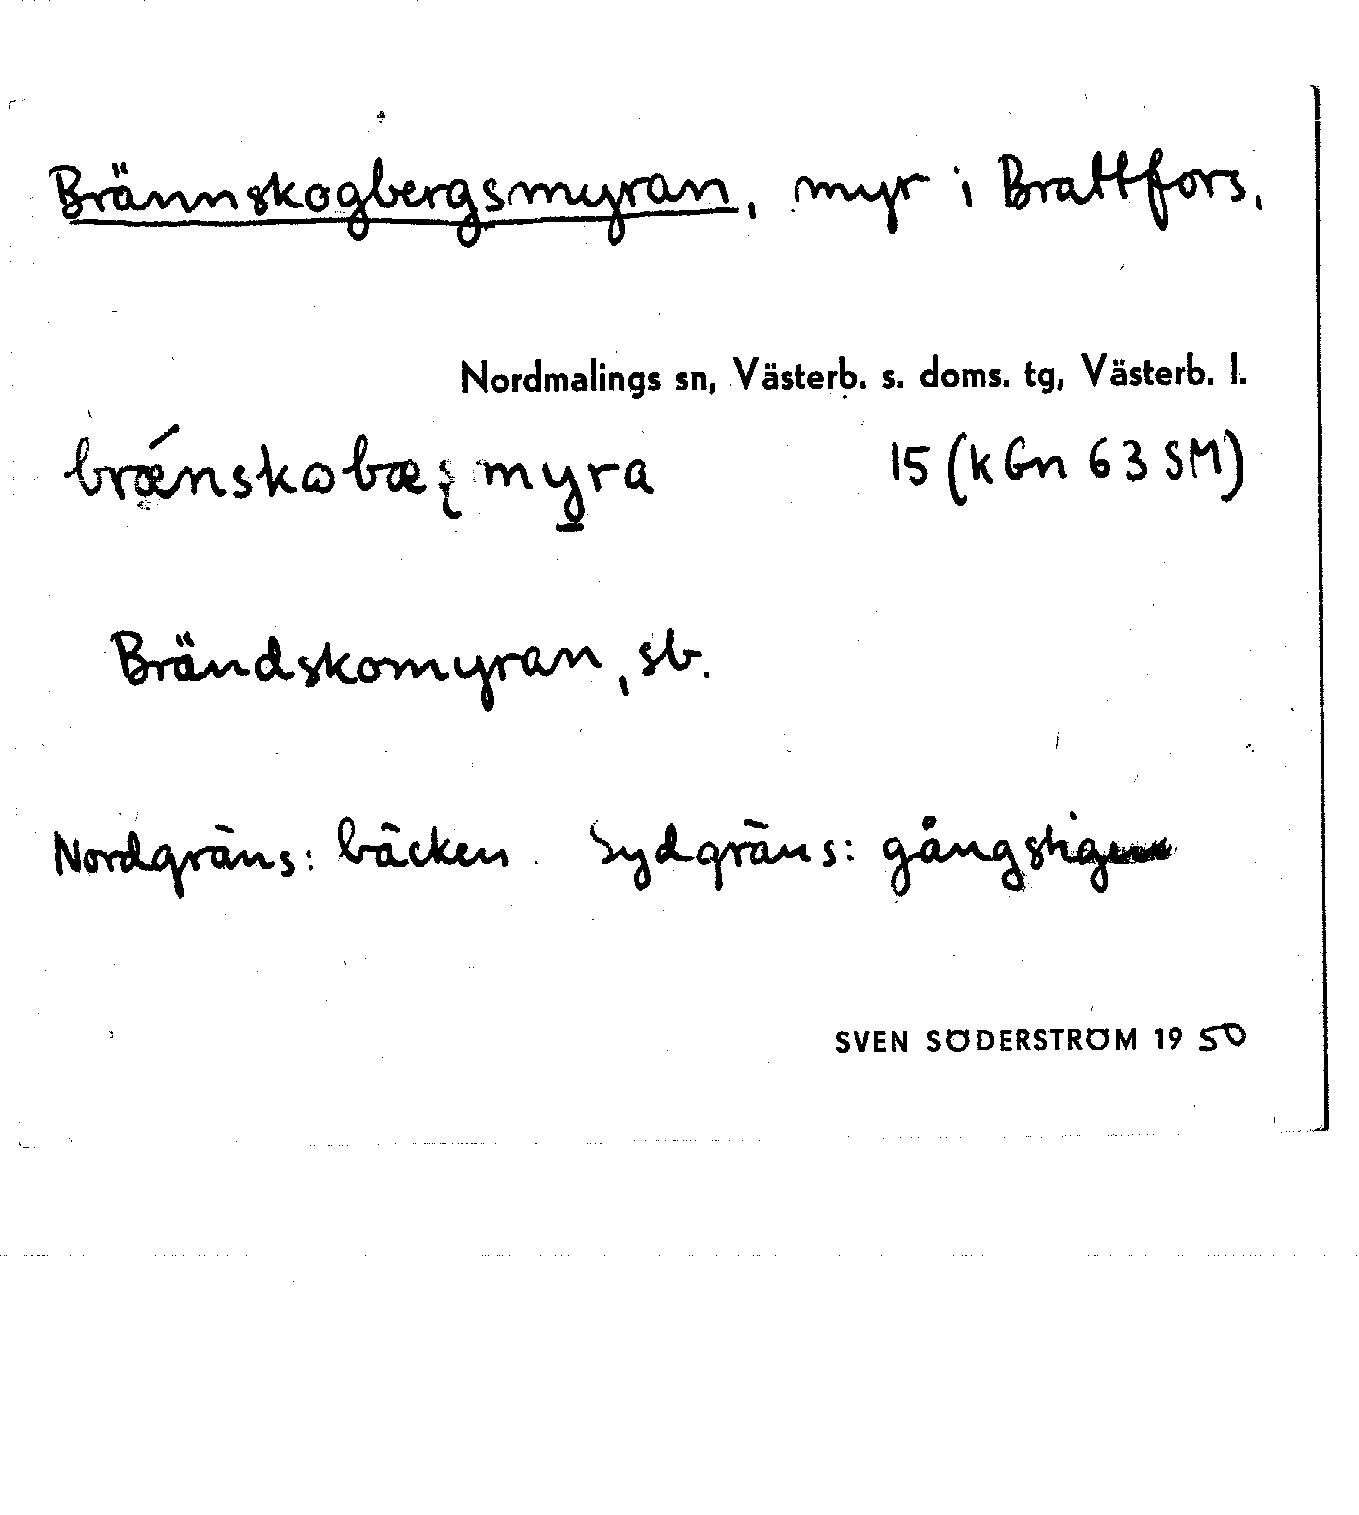 Brännskogbergsmyran, myr i Brattfors.
Nordmalings sn, Västerb. s. doms. tg, Västerb. l.
brǽnskωbæʂmyra 15 (k Gn 63 SM)
Brändskomyran, sb.
Nordgräns: bäcken. Sydgräns: gångstigen
SVEN SÖDERSTRÖM 1950